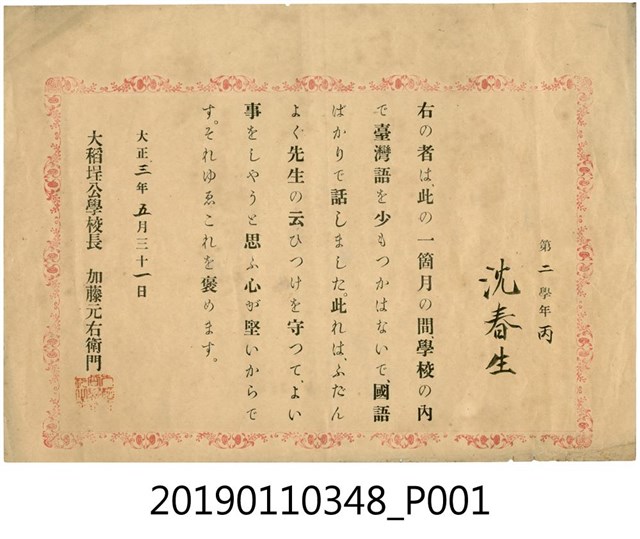 第二學年丙
沈春生
右の者は、此の一箇月の間、學校の內
で臺灣語を少もつかはないで、國語
ばかりで話しました。此れは、ふだん
よく先生の云ひつけを守つて、よい
事をしやうと思ふ心が堅いからで
す。それゆゑこれを褒めます。
大正三年五月三十一日
大稻埕公學校長 加藤元右衛門
20190110348_P001